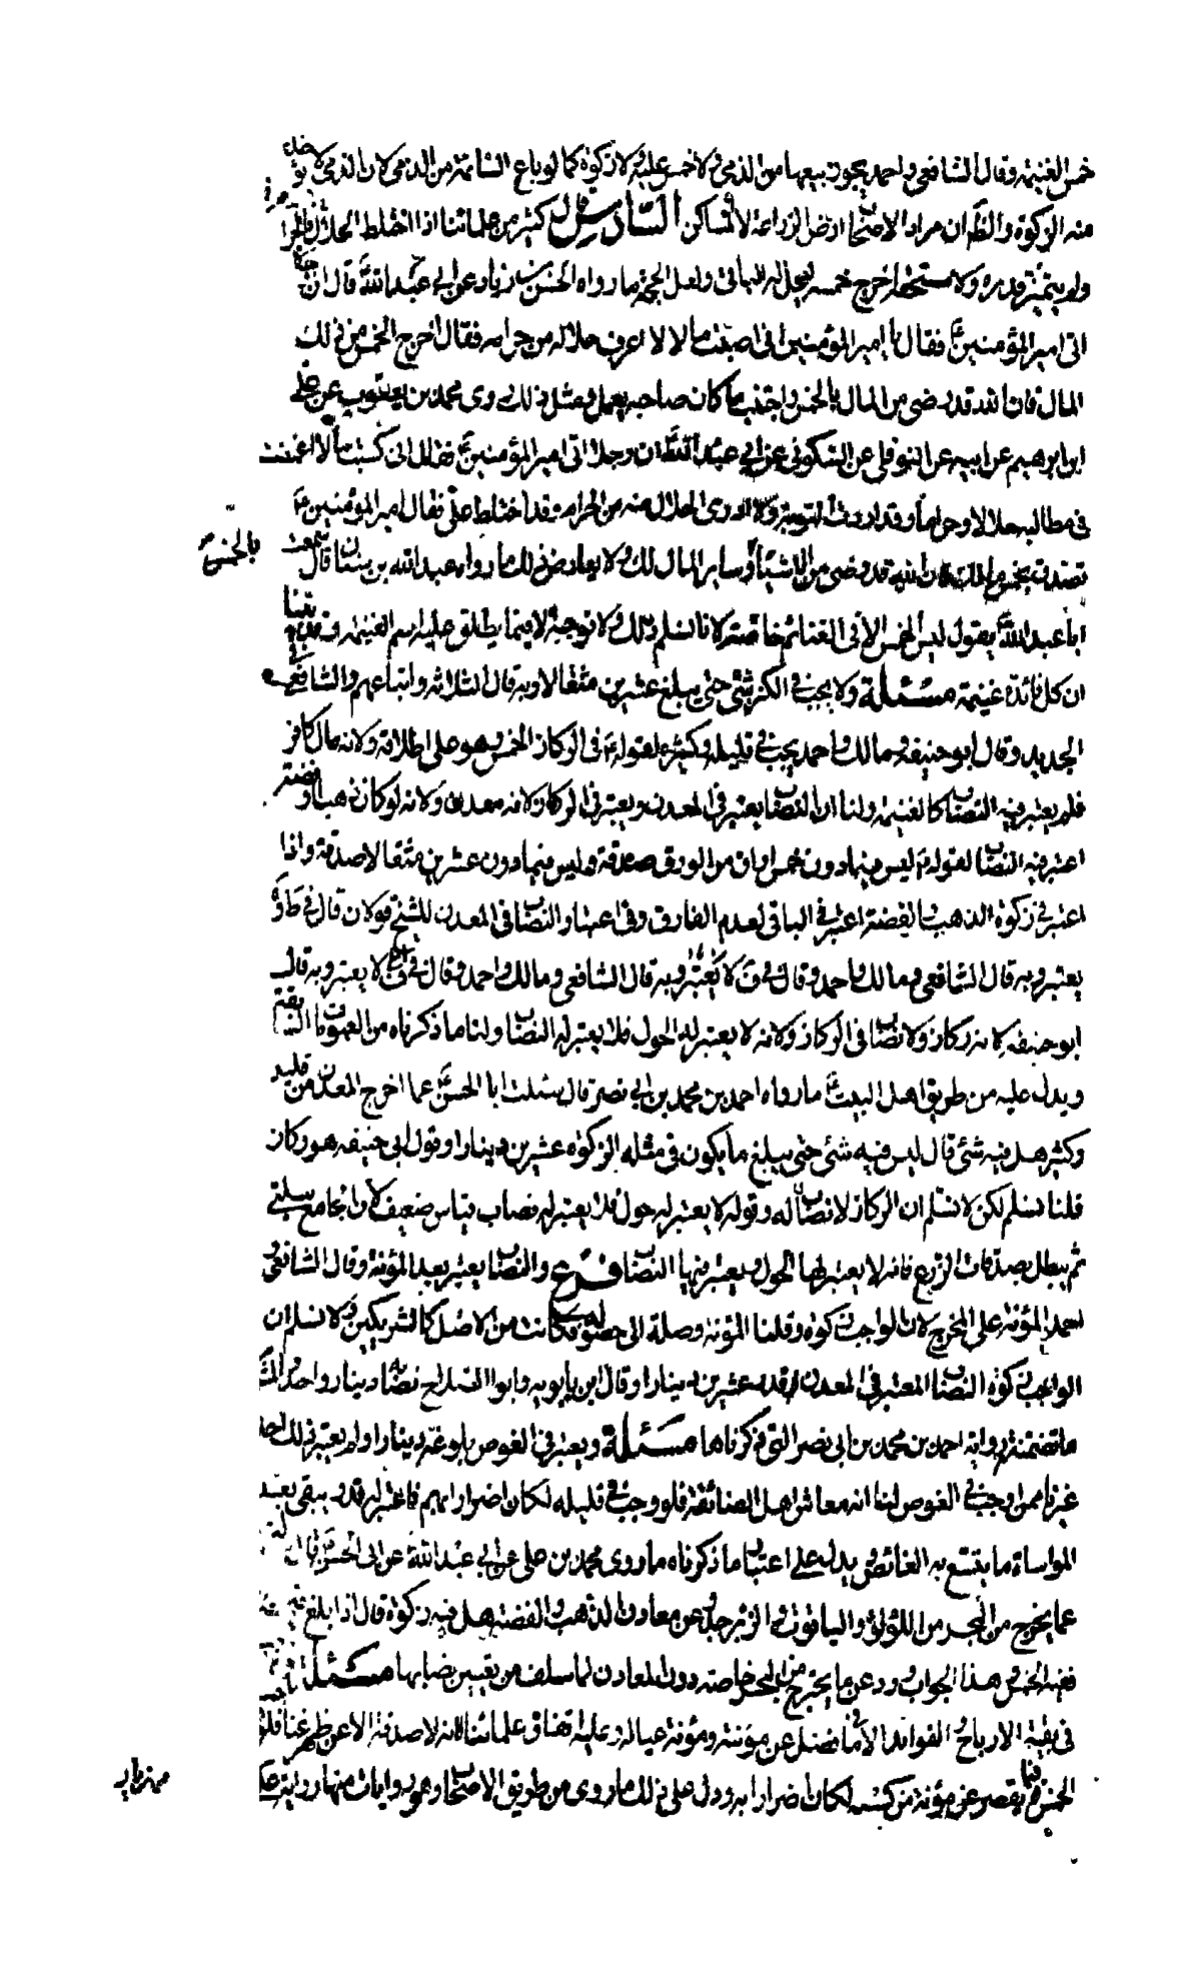 خمس الغنيمة وقال الشافعي واحمد يجوز بيعها من الذمي ولا خمس عليه ولا زكوة كما لو باع السائمة من الذمي لان الذمي لا تؤخذ
منه الزكوة والظاهر ان مراد الاصحاب ارض الزراعة لا المساكن السادس قال كثير من علمائنا اذا اختلط الحلال بالحرام
ولم يتميز قدره ولا مستحقه اخرج خمسه ليحل له الباقي ولعل الحجة ما رواه الحسن بن زياد عن ابي عبد الله ع قال ان رجلا
اتى امير المؤمنين ع فقال يا امير المؤمنين اني اصبت مالا لا اعرف حلاله من حرامه فقال اخرج الخمس من ذلك
المال فان الله قد رضى من المال بالخمس واجتنب ما كان صاحبه يعمل ومثل ذلك روى محمد بن يعقوب عن علي
ابن ابرهيم عن ابيه عن النوفلي عن السكوني عن ابي عبد الله ع ان رجلا اتى امير المؤمنين ع فقال اني كسبت مالا اغمضت
في مطالبه حلالا وحراما وقد اردت التوبة ولا ادرى الحلال منه من الحرام وقد اختلط علي فقال امير المؤمنين ع
تصدق بخمس مالك فان الله قد رضى من الاشياء وساير المال لك ولا يعارض ذلك ما رواه عبد الله بن سنان قال سمعت
بالخمس
ابا عبد الله ع يقول ليس الخمس الا في الغنائم خاصة لانا نسلم ذلك ولا نوجبه الا فيما يطلق عليه اسم الغنيمة وقد بينا
ان كل فائدة غنيمة مسئلة ولا يجب في الكنز شئ حتى يبلغ عشرين مثقالا وبه قال الثلاثة واتباعهم والشافعي في
الجديد وقال ابو حنيفة ومالك واحمد يجب في قليله وكثيره لقوله ع في الركاز الخمس وهو على اطلاقه ولانه مال كافر
فلم يعتبر فيه النصاب كالغنيمة ولنا ان النصاب يعتبر في المعدن ويعتبر في الركاز لانه معدن ولانه لو كان ذهبا او فضة
اعتبر فيه النصاب لقوله ع ليس فيما دون خمس اواق من الورق صدقة وليس فيما دون عشرين مثقالا صدقة واذا
اعتبر في زكوة الذهب والفضة اعتبر في الباقي لعدم الفارق وفي اعتبار النصاب في المعدن للشيخ قولان قال في ط و
يعتبر وبه قال الشافعي ومالك واحمد وقال في ف لا يعتبر وبه قال
ابو حنيفة لانه ركاز ولا نصاب في الركاز ولانه لا يعتبر له الحول فلا يعتبر له النصاب ولنا ما ذكرناه من العمومات
ويدل عليه من طريق اهل البيت ع ما رواه احمد بن محمد بن ابي نصر قال سئلت ابا الحسن ع عما اخرج المعدن من قليل
وكثير هل فيه شئ قال ليس فيه شئ حتى يبلغ ما يكون في مثله الزكوة عشرين دينارا وقول ابي حنيفة هو ركاز
قلنا نسلم لكن لا نسلم ان الركاز لا نصاب له وقوله لا يعتبر له حول فلا يعتبر له نصاب قياس ضعيف لا
ثم يبطل بصدقات الزرع فانه لا يعتبر لها الحول ويعتبر فيها النصاب فرع والنصاب يعتبر بعد المؤنة وقال الشافعي
المؤنة على المخرج لان الواجب زكوة وقلنا المؤنة وصلة الى حصوله فكانت من الاصل كالشريكين ولا نسلم ان
الواجب زكوة النصاب المعتبر في المعدن قدره عشرين دينارا وقال ابن بابويه وابو الصلاح نصابه دينار واحد
ما تضمنته رواية احمد بن محمد بن ابي نصر التي ذكرناها مسئلة ويعتبر في الغوص بلوغه دينارا ولم يعتبر ذلك احد
غيرنا ممن اوجب في الغوص لنا انه معاش اهل فلو وجب في قليله لكان اضرارا بهم فاعتبر له قدر يبقى بعد
المواساة ما ينتفع به الغائص ويدل على اعتبار ما ذكرناه ما روى محمد بن علي عن ابي عبد الله ع عن ابي الحسن ع قال
عما يخرج من البحر من اللؤلؤ والياقوت والزبرجد وعن معادن الذهب والفضة هل فيه زكوة قال اذا بلغ
ففيه الخمس هذا الجواب ورد عن ما يخرج من البحر خاصة دون المعادن لما سلف من تعيين نصابها مسئلة
في بقية الارباح والفوائد الا فيما فضل عن مؤنته ومؤنة عياله وعليه اتفاق علمائنا لانه لا صدقة الا عن ظهر غنى
الخمس فيما يقصر عن مؤنة من كسبه لكان اضرارا به ودل على ذلك ما روى من طريق الاصحاب وهو روايات منها رواية